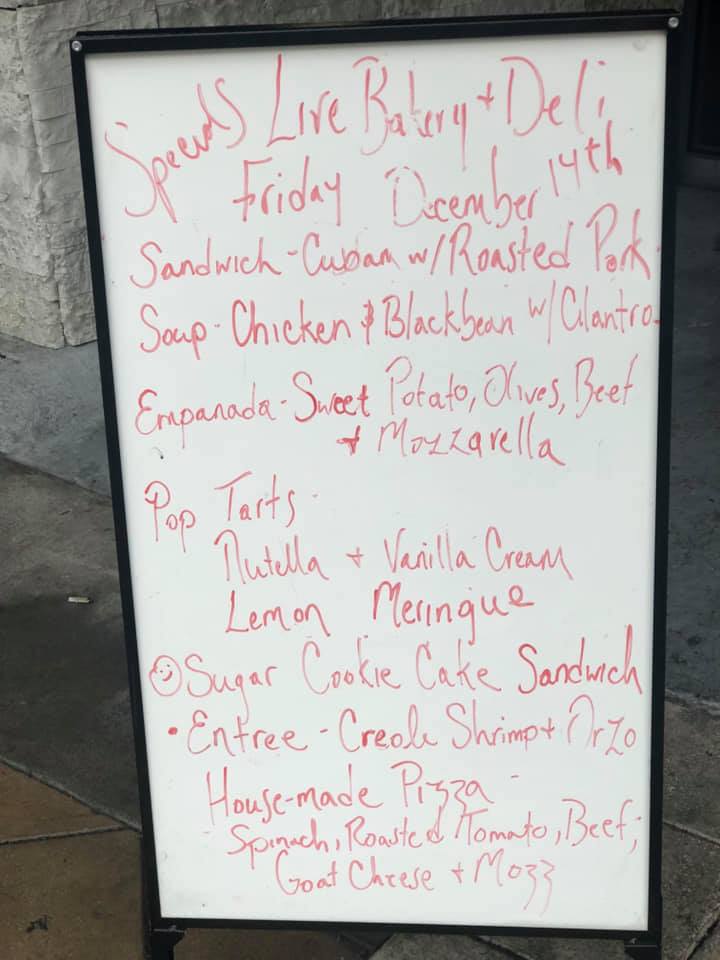 Live Bakery + Deli
Friday December 14th
Sandwich - Cuban w/ Roasted Pork
Soup - Chicken & Blackbean w/ Cilantro.
Empanada - Sweet Potato, Olives, Beef
+ Mozzarella
Pop Tarts -
Nutella + Vanilla Cream
Lemon Meringue
Sugar Cookie Cake Sandwich
• Entree - Creole Shrimp + Orzo
House-made Pizza -
Spinach, Roasted Tomato, Beef,
Goat Cheese + Mozz